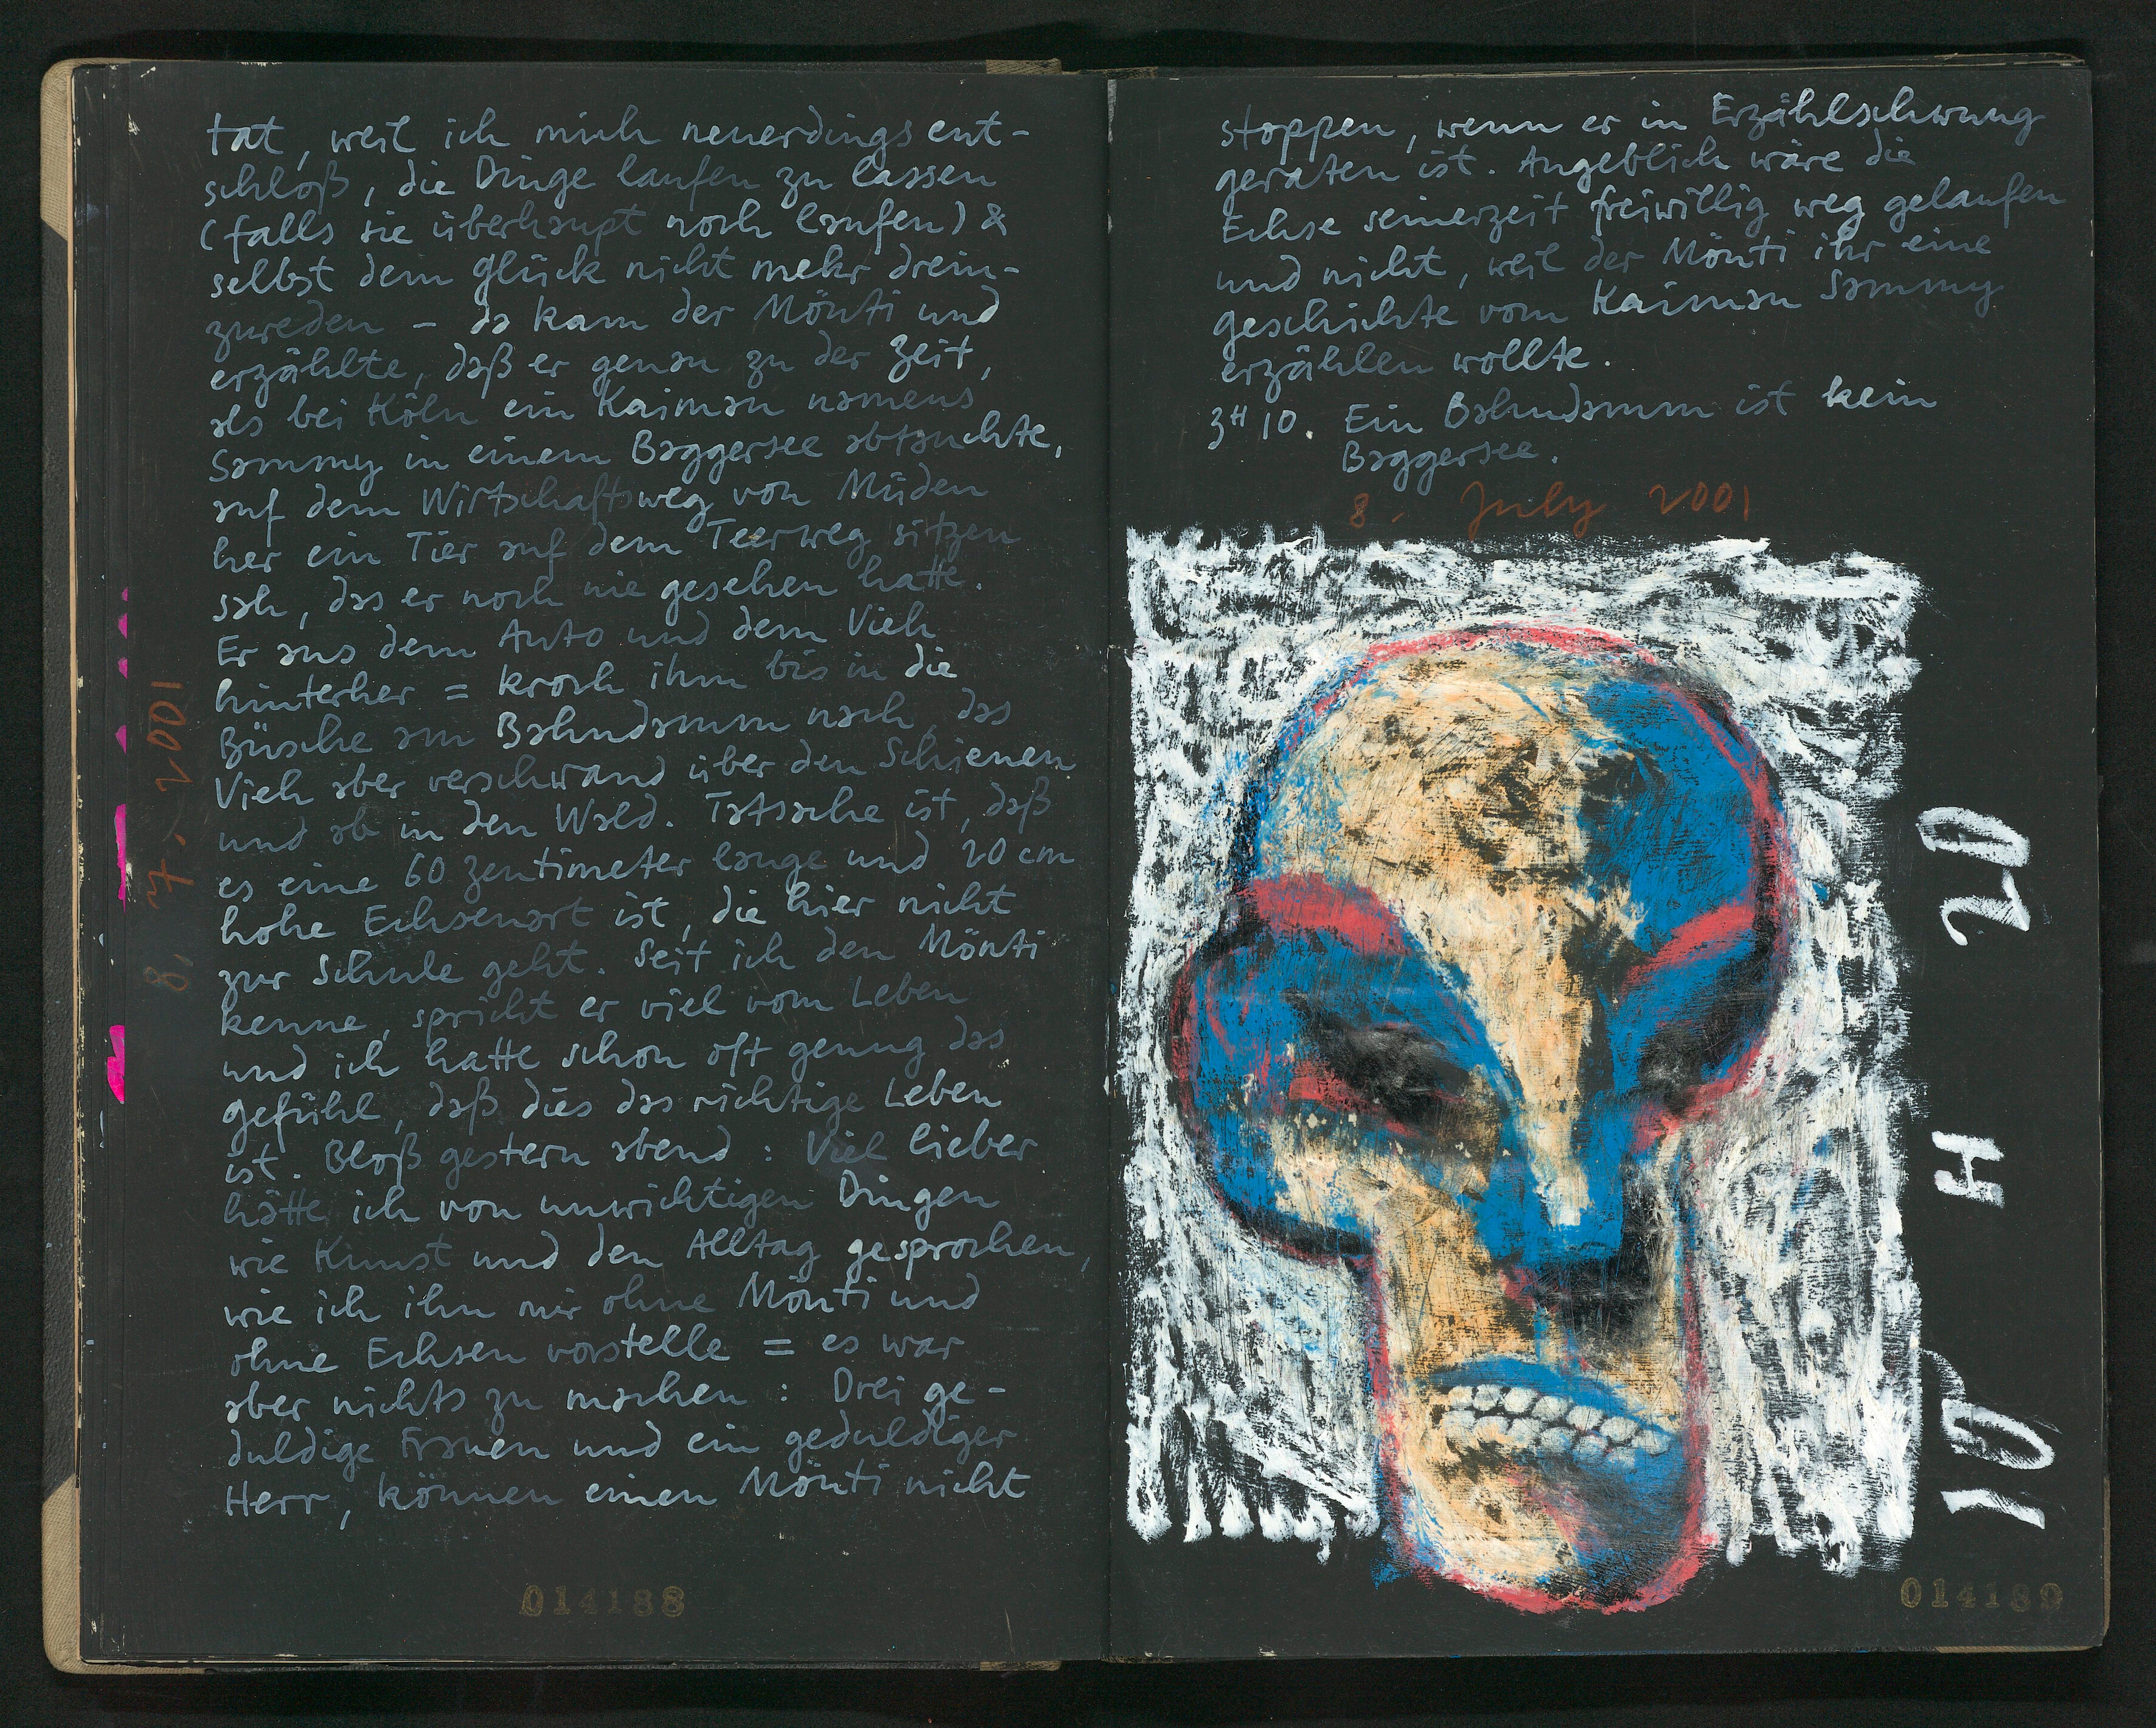 tat, weil ich mich neuerdings ent-
schloß, die Dinge laufen zu lassen
(falls sie überhaupt noch laufen) &
selbst dem Glück nicht mehr drein-
zureden - da kam der Mönti und
erzählte, daß er genau zu der Zeit,
als bei Köln ein Kaiman namens
Sammy in einem Baggersee abtauchte,
auf dem Wirtschaftsweg von Müden
her ein Tier auf dem Teerweg sitzen
sah, das er noch nie gesehen hatte.
Er aus dem Auto und dem Vieh
hinterher = kroch ihm bis in die
Büsche am Bahndamm nach, das
Vieh aber verschwand über den Schienen
und ab in den Wald. Tatsache ist, daß
es eine 60 Zentimeter lange und 20 cm
hohe Echsenart ist, die hier nicht
zur Schule geht. Seit ich den Mönti
kenne, spricht er viel vom Leben
und ich hatte schon oft genug das
Gefühl, daß dies das richtige Leben
ist. Bloß gestern abend: Viel lieber
hätte ich von unwichtigen Dingen
wie Kunst und den Alltag gesprochen,
wie ich ihn mir ohne Mönti und
ohne Echsen vorstelle = es war
aber nichts zu machen: Drei ge-
duldige Frauen und ein geduldiger
Herr, können einen Mönti nicht
8. 7. 2001
014188
stoppen, wenn er in Erzählschwung
geraten ist. Angeblich wäre die
Echse seinerzeit freiwillig weg gelaufen
und nicht, weil der Mönti ihr eine
Geschichte vom Kaiman Sammy
erzählen wollte.
3H10. Ein Bahndamm ist kein
Baggersee.
8. July 2001
10 H 20
014189